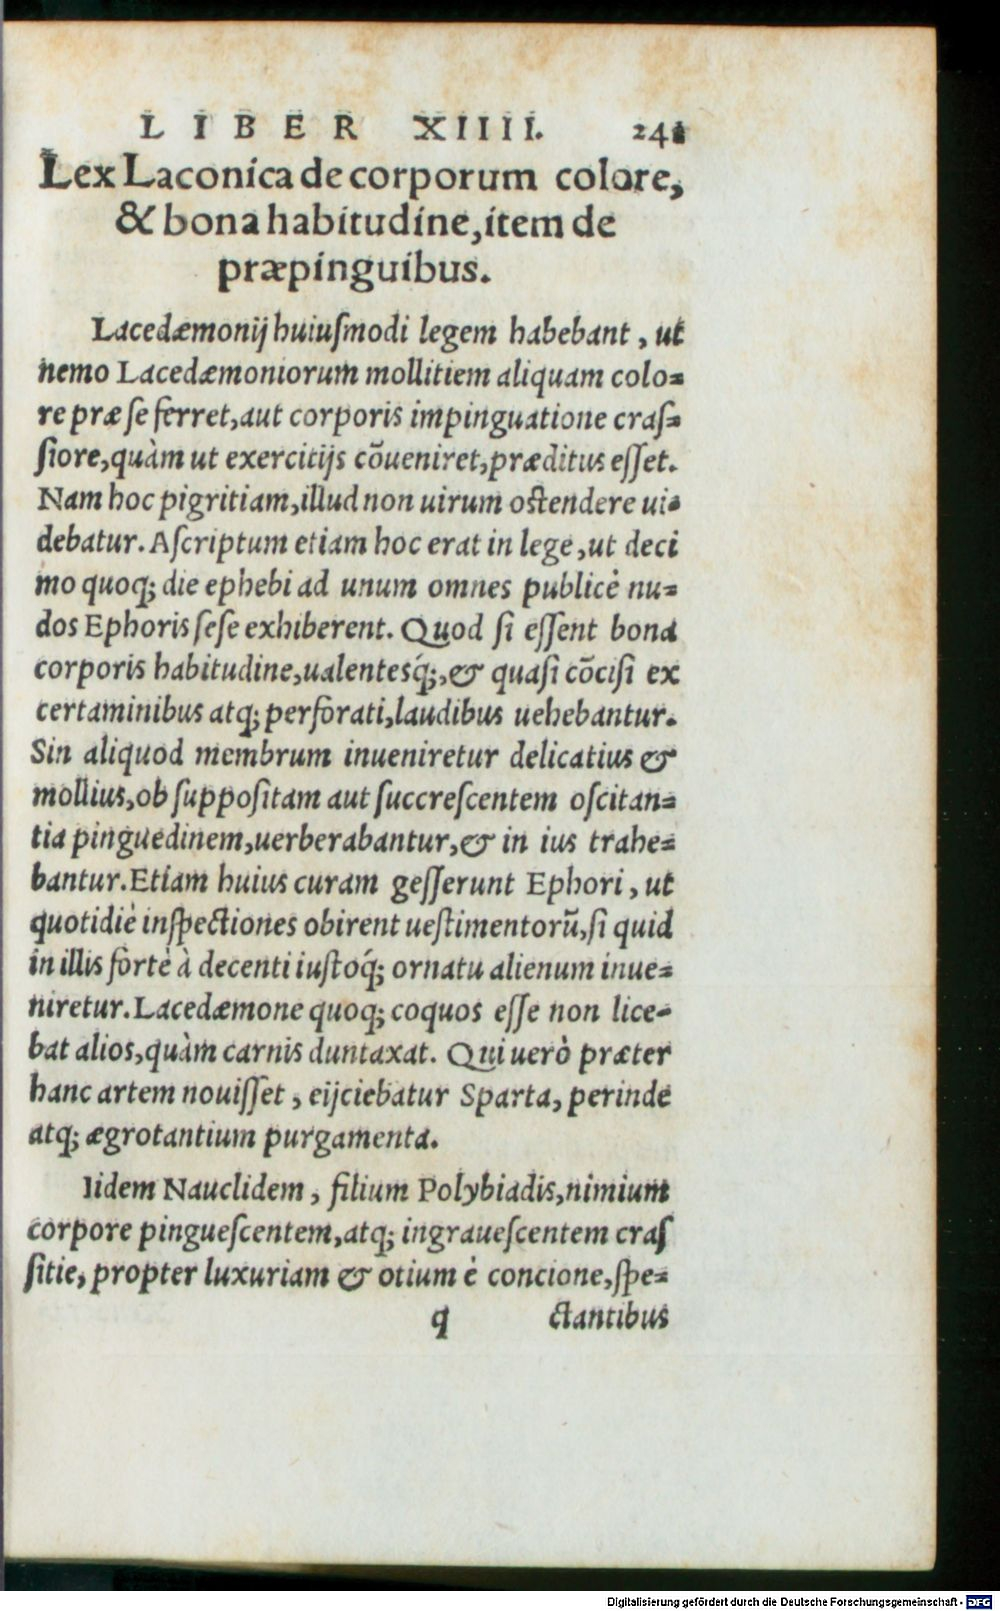 LIBER XIIII. 241
Lex Laconica de corporum colore,
& bona habitudine, item de
præpinguibus.
Lacedæmonij huiuſmodi legem habebant, ut
nemo Lacedæmoniorum mollitiem aliquam colo=
re præ ſe ferret, aut corporis impinguatione craſ=
ſiore, quàm ut exercitijs cōueniret, præditus eſſet.
Nam hoc pigritiam, illud non uirum oſtendere ui=
debatur. Aſcriptum etiam hoc erat in lege, ut deci
mo quoq; die ephebi ad unum omnes publicè nu=
dos Ephoris ſeſe exhiberent. Quod ſi eſſent bona
corporis habitudine, ualentesq́;, & quaſi cōciſi ex
certaminibus atq; perforati, laudibus uehebantur.
Sin aliquod membrum inueniretur delicatius &
mollius, ob ſuppoſitam aut ſuccreſcentem oſcitan=
tia pinguedinem, uerberabantur, & in ius trahe=
bantur. Etiam huius curam geſſerunt Ephori, ut
quotidiè inſpectiones obirent ueſtimentorū, ſi quid
in illis fortè à decenti iuſtoq́; ornatu alienum inue=
niretur. Lacedæmone quoq; coquos eſſe non lice=
bat alios, quàm carnis duntaxat. Qui uerò præter
hanc artem nouiſſet, eijciebatur Sparta, perinde
atq; ægrotantium purgamenta.
Iidem Nauclidem, filium Polybiadis, nimium
corpore pingueſcentem, atq; ingraueſcentem craſ
ſitie, propter luxuriam & otium è concione, ſpe=
q ctantibus
Digitalisierung gefördert durch die Deutsche Forschungsgemeinschaft - DFG